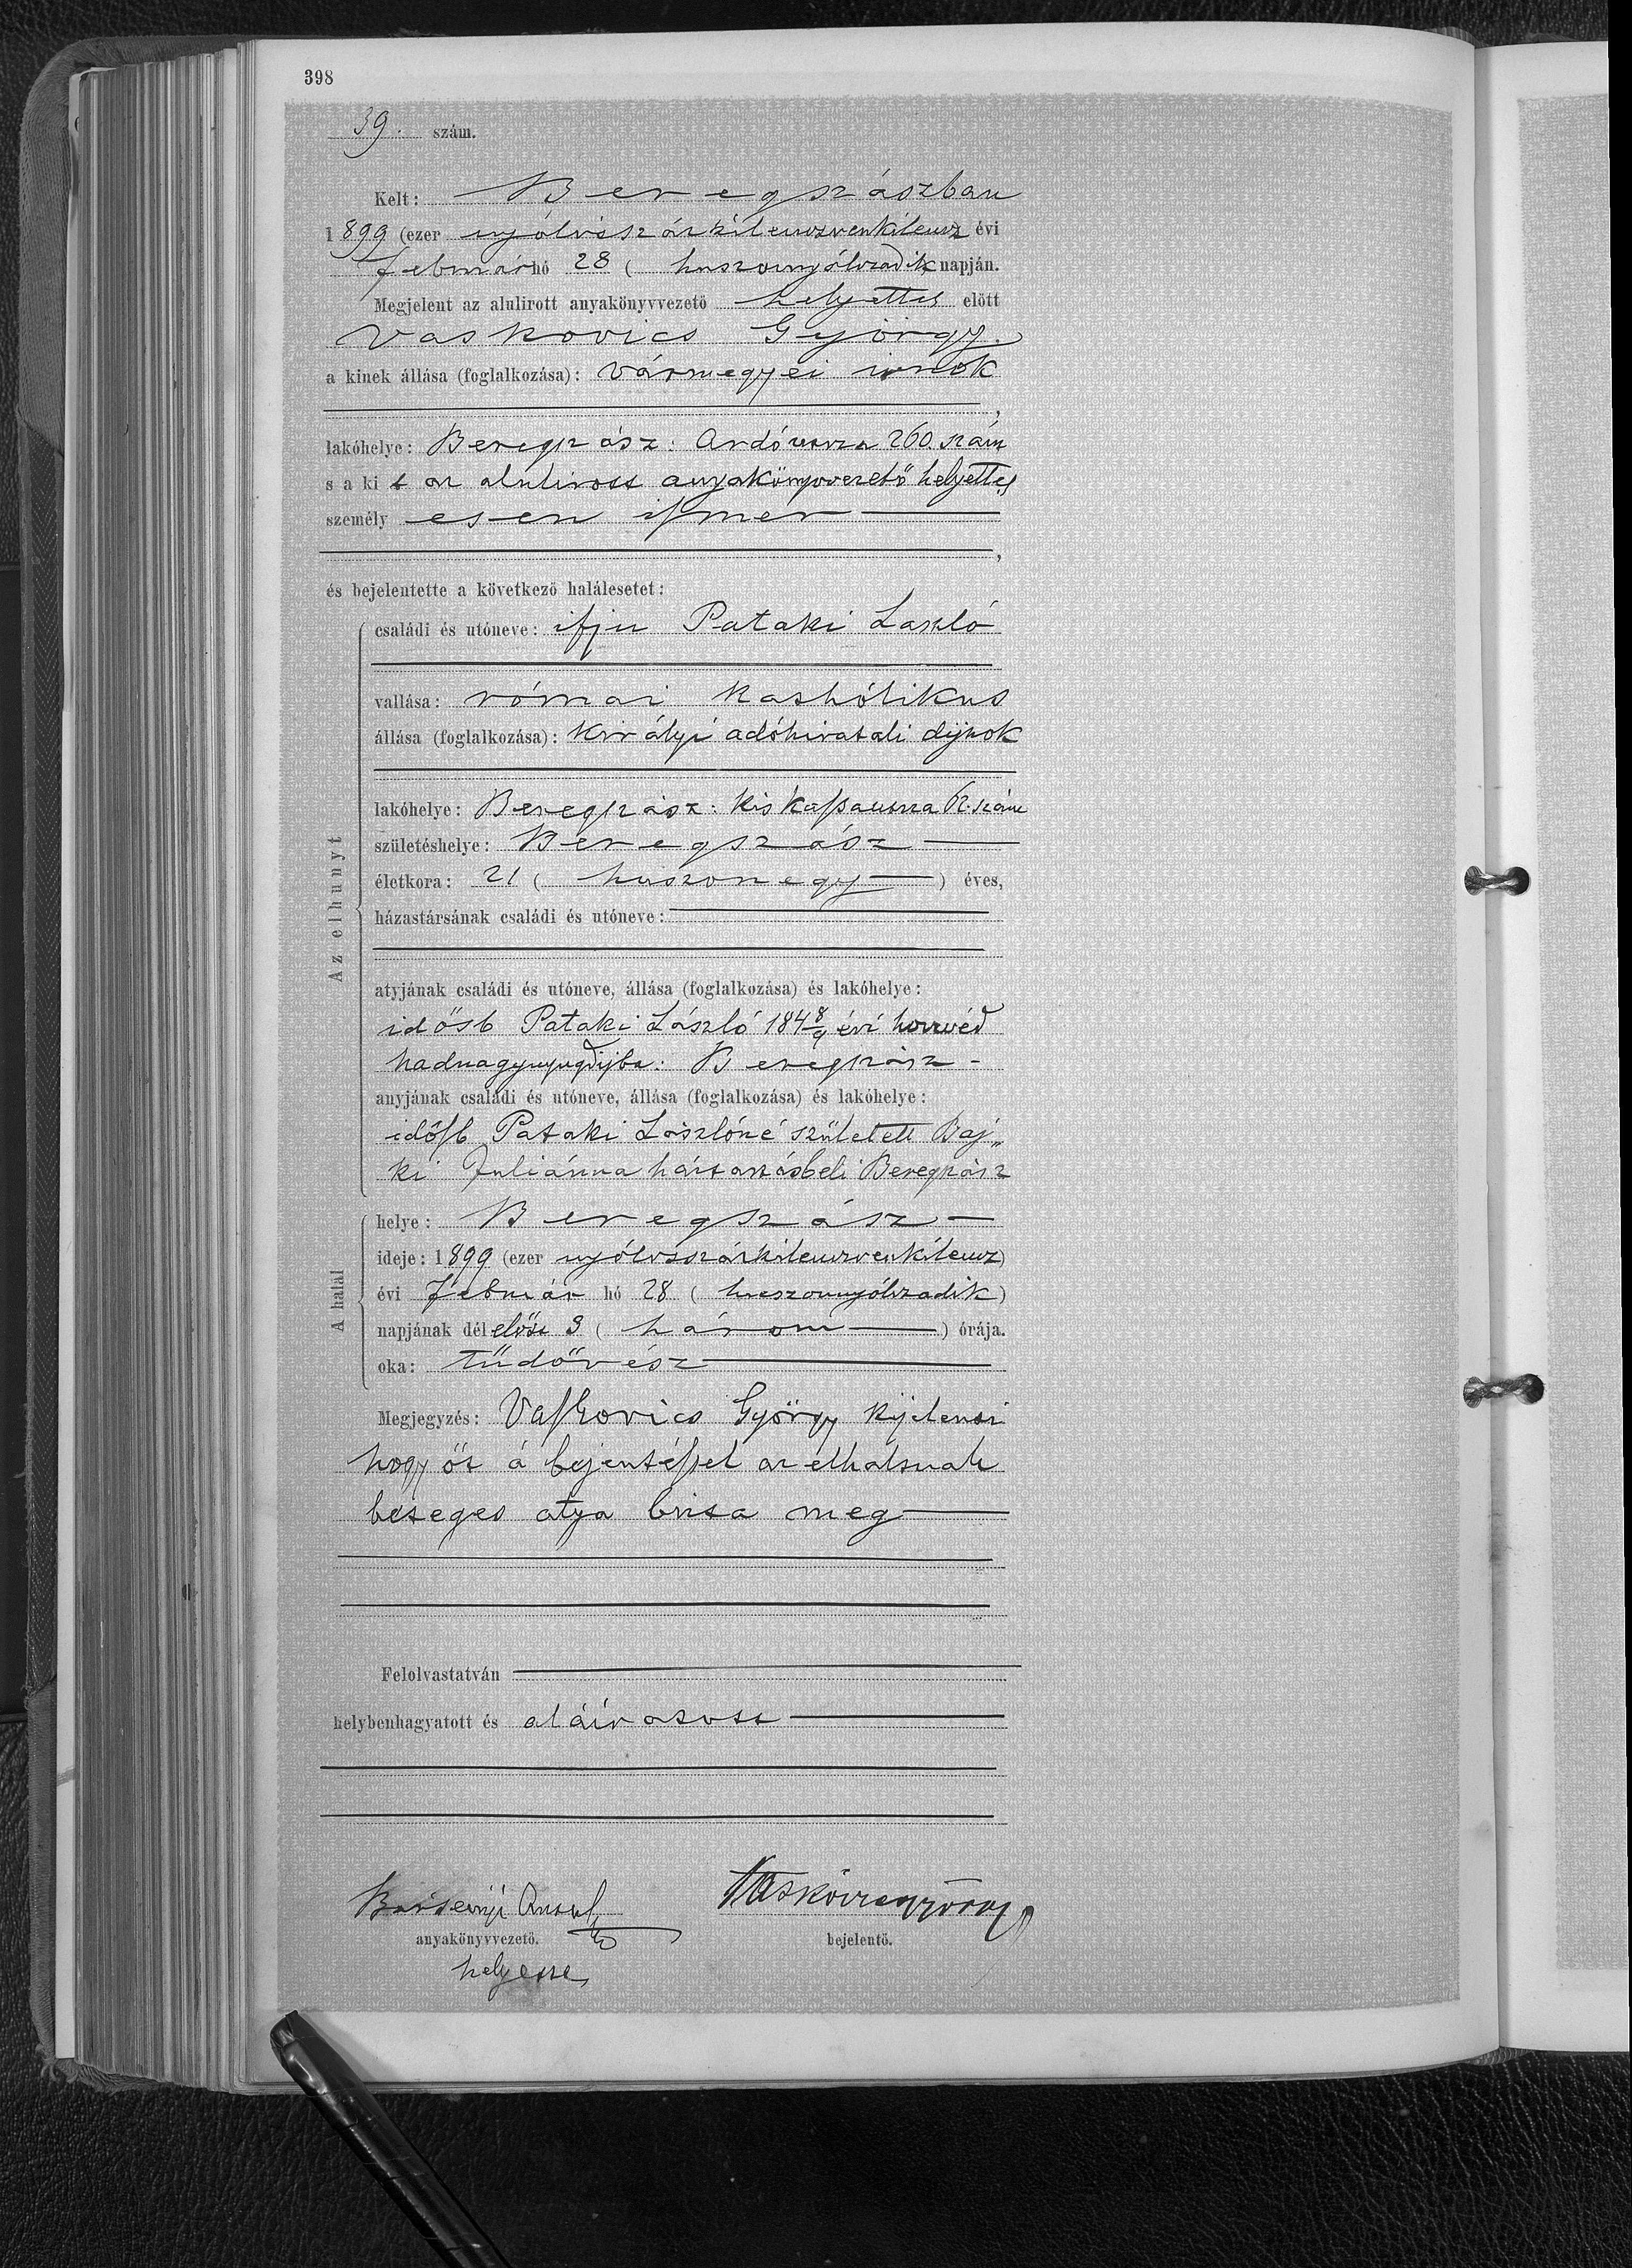 398
39. szám.
Kelt: Beregszászban
1899 (ezer nyólcszázkilenczvenkilencz évi
február hó 28 (huszonnyólczadik napján.
Megjelent az alulirott anyakönyvvezető helyettes előtt
Vaskovics György.
a kinek állása (foglalkozása): vármegyei irnok
lakóhelye: Beregszász: Ardó utcza 260. szám
s a kit az alulirott anyakönyvvezető helyettes
személyesen ismer
és bejelentette a következő halálesetet:
Az elhunyt
családi és utóneve: ifju Pataki László
vallása: római kathólikus
állása (foglalkozása): királyi adóhivatali dijnok
lakóhelye: Beregszász: Kiskaszautcza szám
születéshelye: Beregszász
életkora: 21 (huszonegy) éves,
házastársának családi és utóneve:
atyjának családi és utóneve, állása (foglalkozása) és lakóhelye:
idősb Pataki László 1848/9 évi honvéd
hadnagy nyugdijba: Beregszász -
anyjának családi és utóneve, állása (foglalkozása) és lakóhelye:
idősb Pataki Lászlóné született Baj„
ki Juliánna háztartásbeli Beregszász
A halál
helye: Beregszász
ideje: 1899 (ezer nyólczszázkilenczvenkilencz)
évi február hó 28 (huszonnyólczadik)
napjának délelőtt 3 (három) órája.
oka: tüdővész
Megjegyzés: Vaskovics György kijelenti
hogy őt á bejentéssel az elhaltnak
beteges atya bizta meg
Felolvastatván
helybenhagyatott és aláiratott
Antal Vaskovics György
anyakönyvvezető. bejelentő.
helyettes